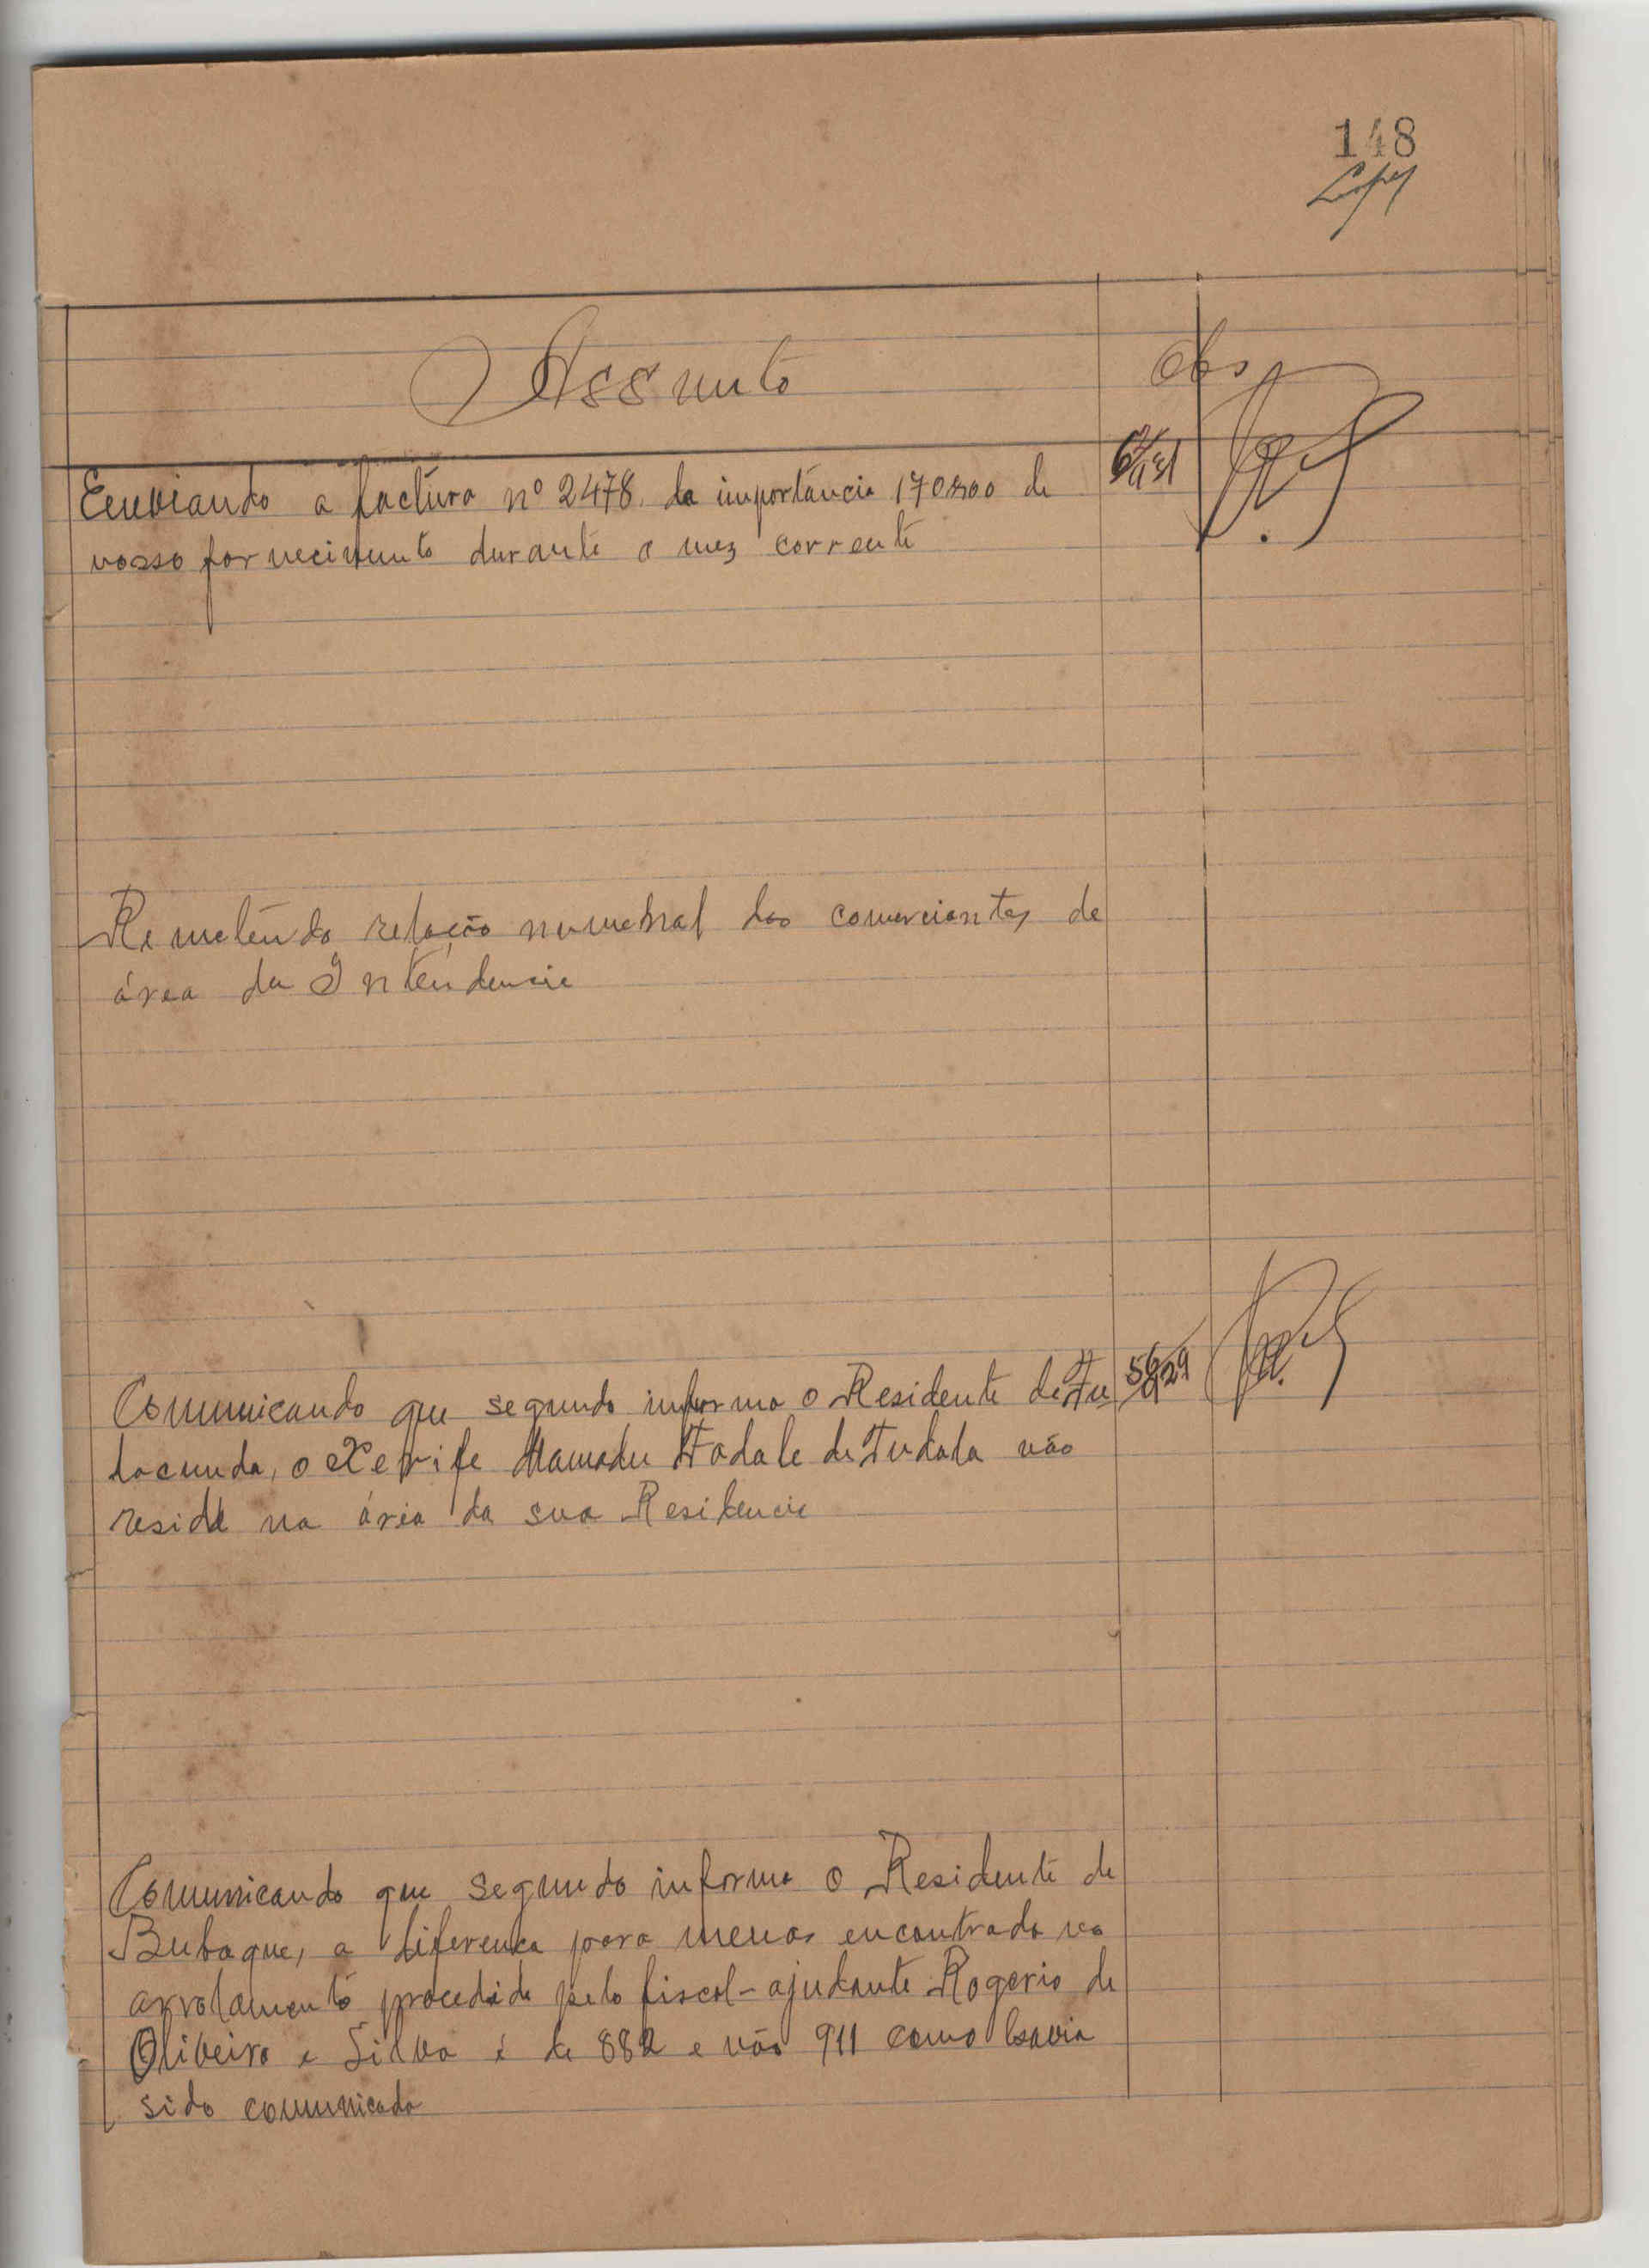 148
Lopes
Assunto
Obs
Enviando a factura nº 2478 da importância 170$00 de
vosso fornecimento durante o mez corrente
Remetendo relação numeral dos comerciantes de
área da Intendencia
Comunicando que segundo informa o Residente de Fu
lacunda, o Xerife Mamadu de não
reside na área da sua Residencia
Comunicando que segundo informa o Residente de
Bubaque, a diferença para menos encontrada no
arrolamento procedido pelo fiscal-ajudante Rogerio de
Oliveira e Silva é de 882 e não 911 como havia
sido comunicado